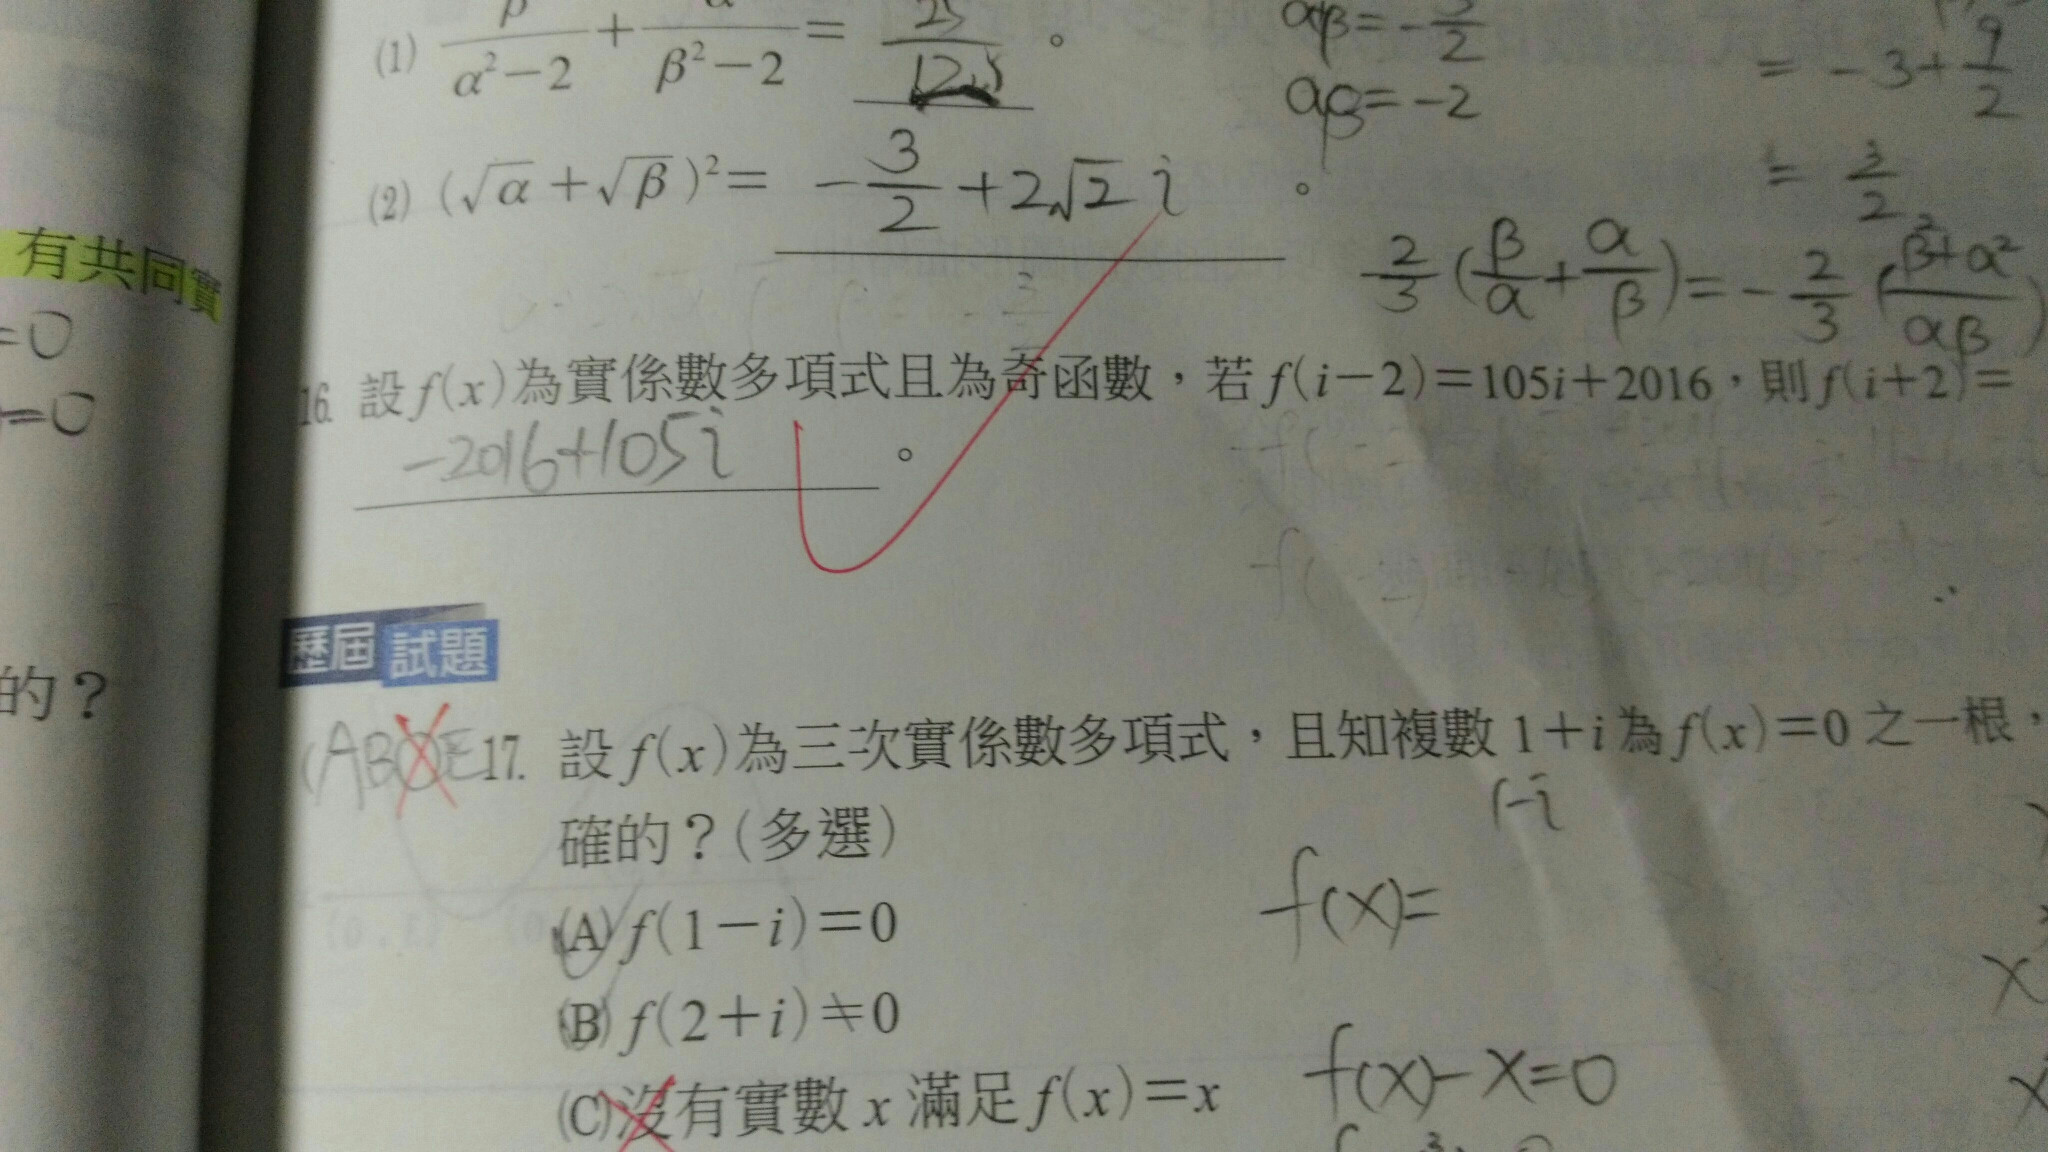 (1) β/(α²−2) + α/(β²−2) = 25/12.5 。
αβ=−2
= −3+9/2
= 3/2
(2) (√α+√β)²= −3/2+2√2 i 。
−2/3(β/α+α/β)=−2/3(β²+α²/αβ)
有共同實
=0
=0
16. 設 f(x)為實係數多項式且為奇函數,若 f(i−2)=105i+2016,則 f(i+2)=
−2016+105i 。
歷屆試題
的?
17. 設 f(x)為三次實係數多項式,且知複數 1+i 為 f(x)=0 之一根,
1-i
確的?(多選)
(A) f(1−i)=0
f(x)=
(B) f(2+i)≠0
(C)沒有實數 x 滿足 f(x)=x
f(x)-x=0